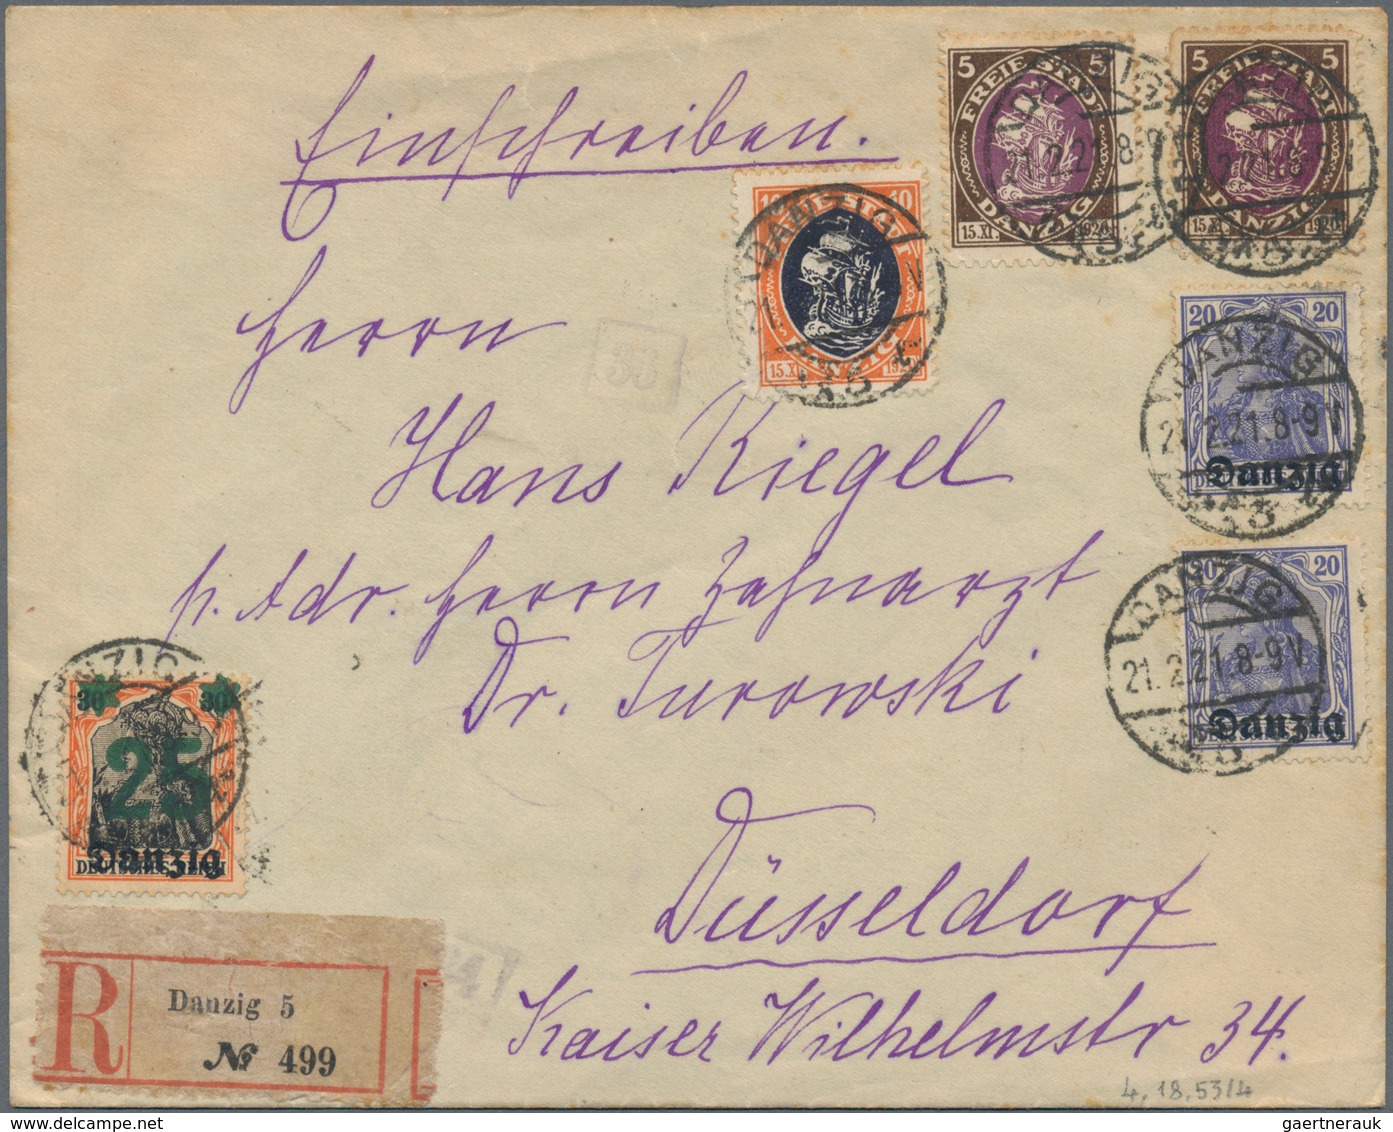 Einschreiben.
5 5
FREIE STADT
DANZIG
15.XI. 1920
5 5
FREIE STADT
DANZIG
15.XI. 1920
DANZIG
21.2.21.8-9V
10
DANZIG
15.XI.
Herrn
36
20 20
DANZIG
21.2.21.8-9V
Danzig
Hans Riegel
p. Adr. Herrn Zahnarzt
20 20
DANZIG
21.2.21.8-9V
Danzig
Dr. Turowski
30 30
25
Danzig
DEUTSCHES REICH
Düsseldorf
Kaiser Wilhelmstr 34.
R
Danzig 5
№ 499
4, 18, 53/4
gaertnerauk